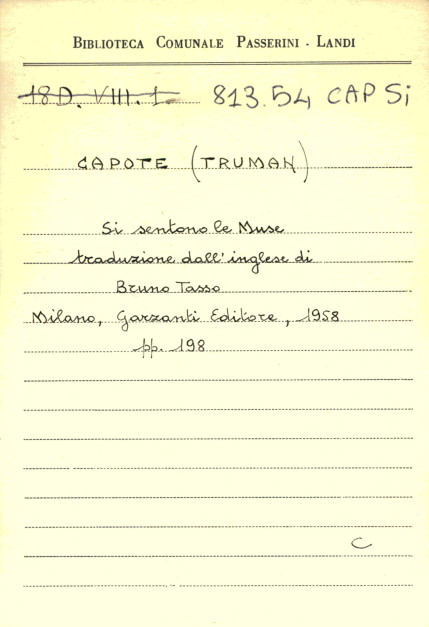 BIBLIOTECA COMUNALE PASSERINI - LANDI
18 D. VIII. 1 813.54 CAP Si
CAPOTE (TRUMAN)
Si sentono le Muse
traduzione dall'inglese di
Bruno Tasso
Milano, Garzanti Editore, 1958
pp. 198
C